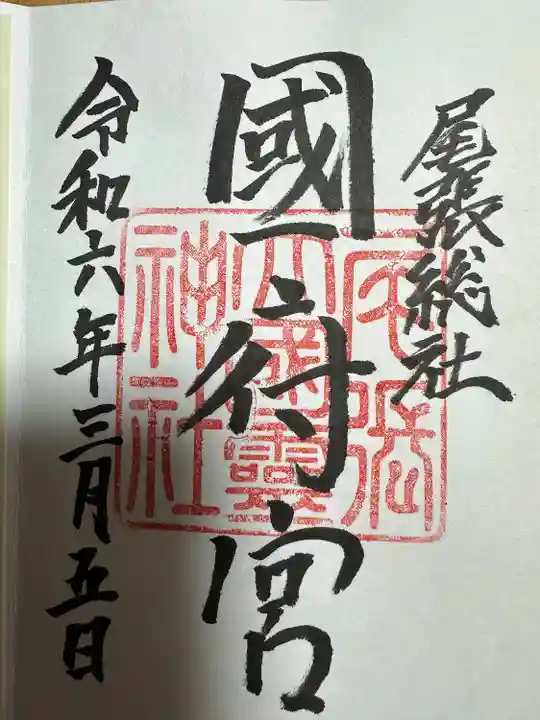 尾張総社
國府宮
令和六年三月五日
尾張
大國霊
神社